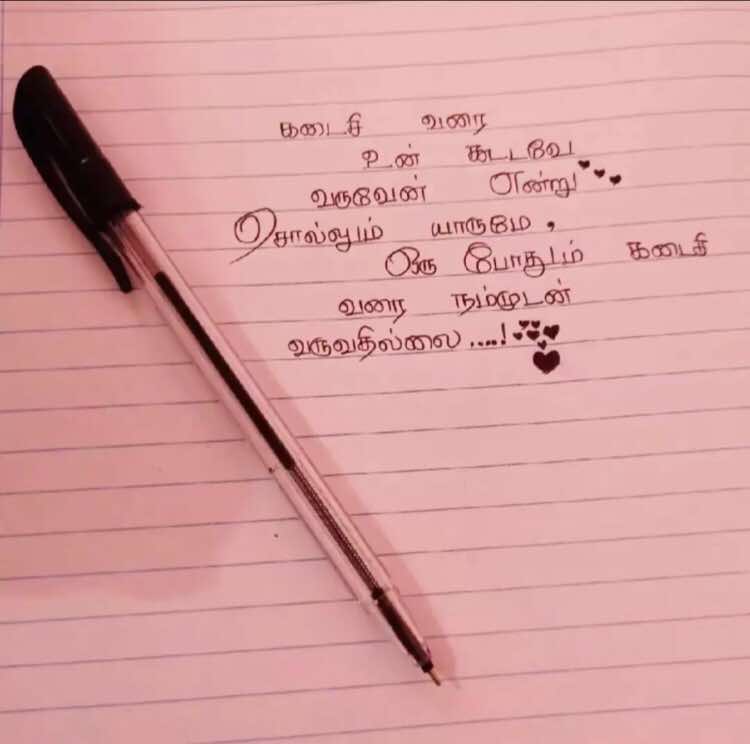 கடைசி வரை
உன் கூடவே
வருவேன் என்று
சொல்லும் யாருமே,
ஒரு போதும் கடைசி
வரை நம்முடன்
வருவதில்லை....!